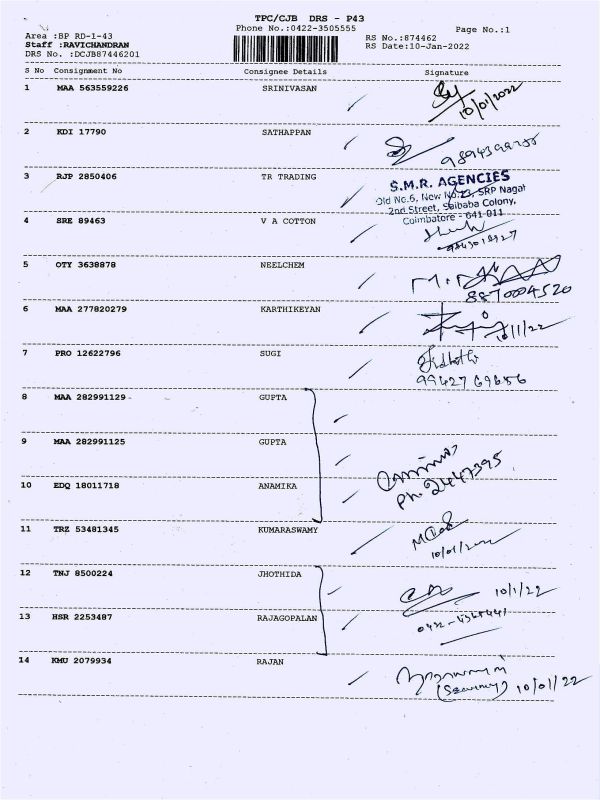 TPC/CJB DRS - P43
Phone No.:0422-3505555
Page No.:1
Area :BP RD-1-43
RS No.:874462
Staff :RAVICHANDRAN
RS Date:10-Jan-2022
DRS No. :DCJB87446201
S No Consignment No Consignee Details Signature
1 MAA 563559226 SRINIVASAN
10/01/2022
2 KDI 17790 SATHAPPAN
3 RJP 2850406 TR TRADING
S.M.R. AGENCIES
Old No.6, New No.23, SRP Nagar
2nd Street, Saibaba Colony,
Coimbatore - 641 011
4 SRE 89463 V A COTTON
5 OTY 3638878 NEELCHEM
8870004520
6 MAA 277820279 KARTHIKEYAN
7 PRO 12622796 SUGI
99427 69656
8 MAA 282991129 GUPTA
9 MAA 282991125 GUPTA
Ph. 2447395
10 EDQ 18011718 ANAMIKA
11 TRZ 53481345 KUMARASWAMY
12 TNJ 8500224 JHOTHIDA
10/1/22
13 HSR 2253487 RAJAGOPALAN
14 KMU 2079934 RAJAN
(Security) 10/01/22